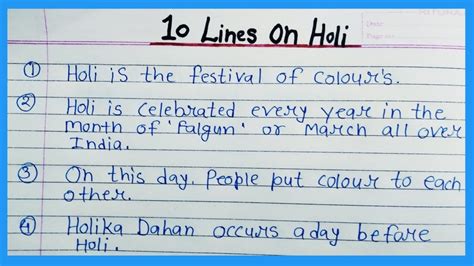 10 Lines On Holi
① Holi is the festival of colour's.
② Holi is celebrated every year in the
month of 'falgun' or March all over
India.
③ On this day, People put colour to each
other.
④ Holika Dahan occurs a day befare
Holi.